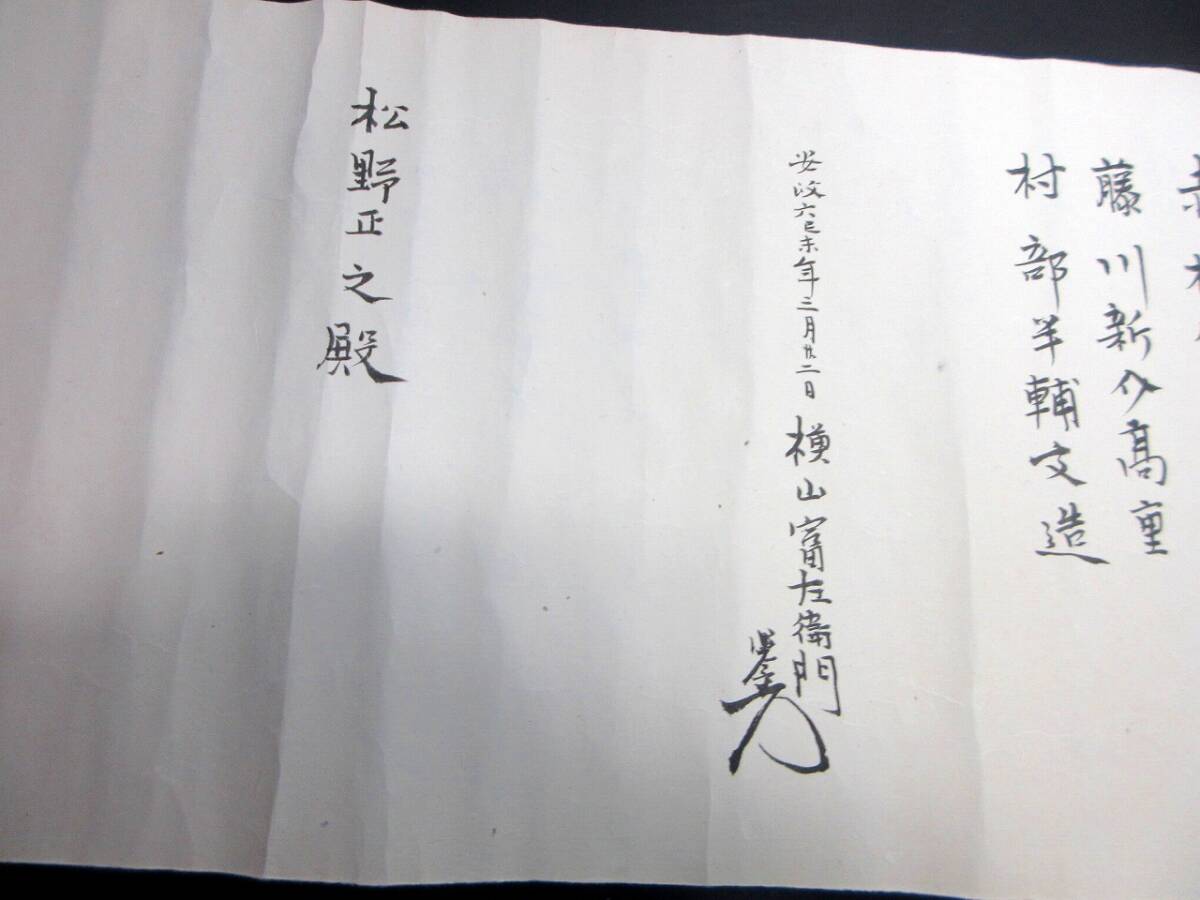 赤
藤川新八高重
村部羊輔文造
安政六己未年三月廿二日 横山富左衛門
松野正之殿